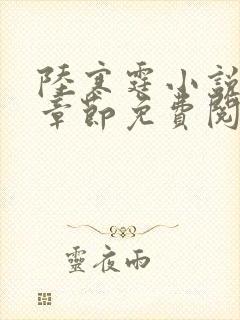 陸寒霆小說
章節免費閱
靈夜雨